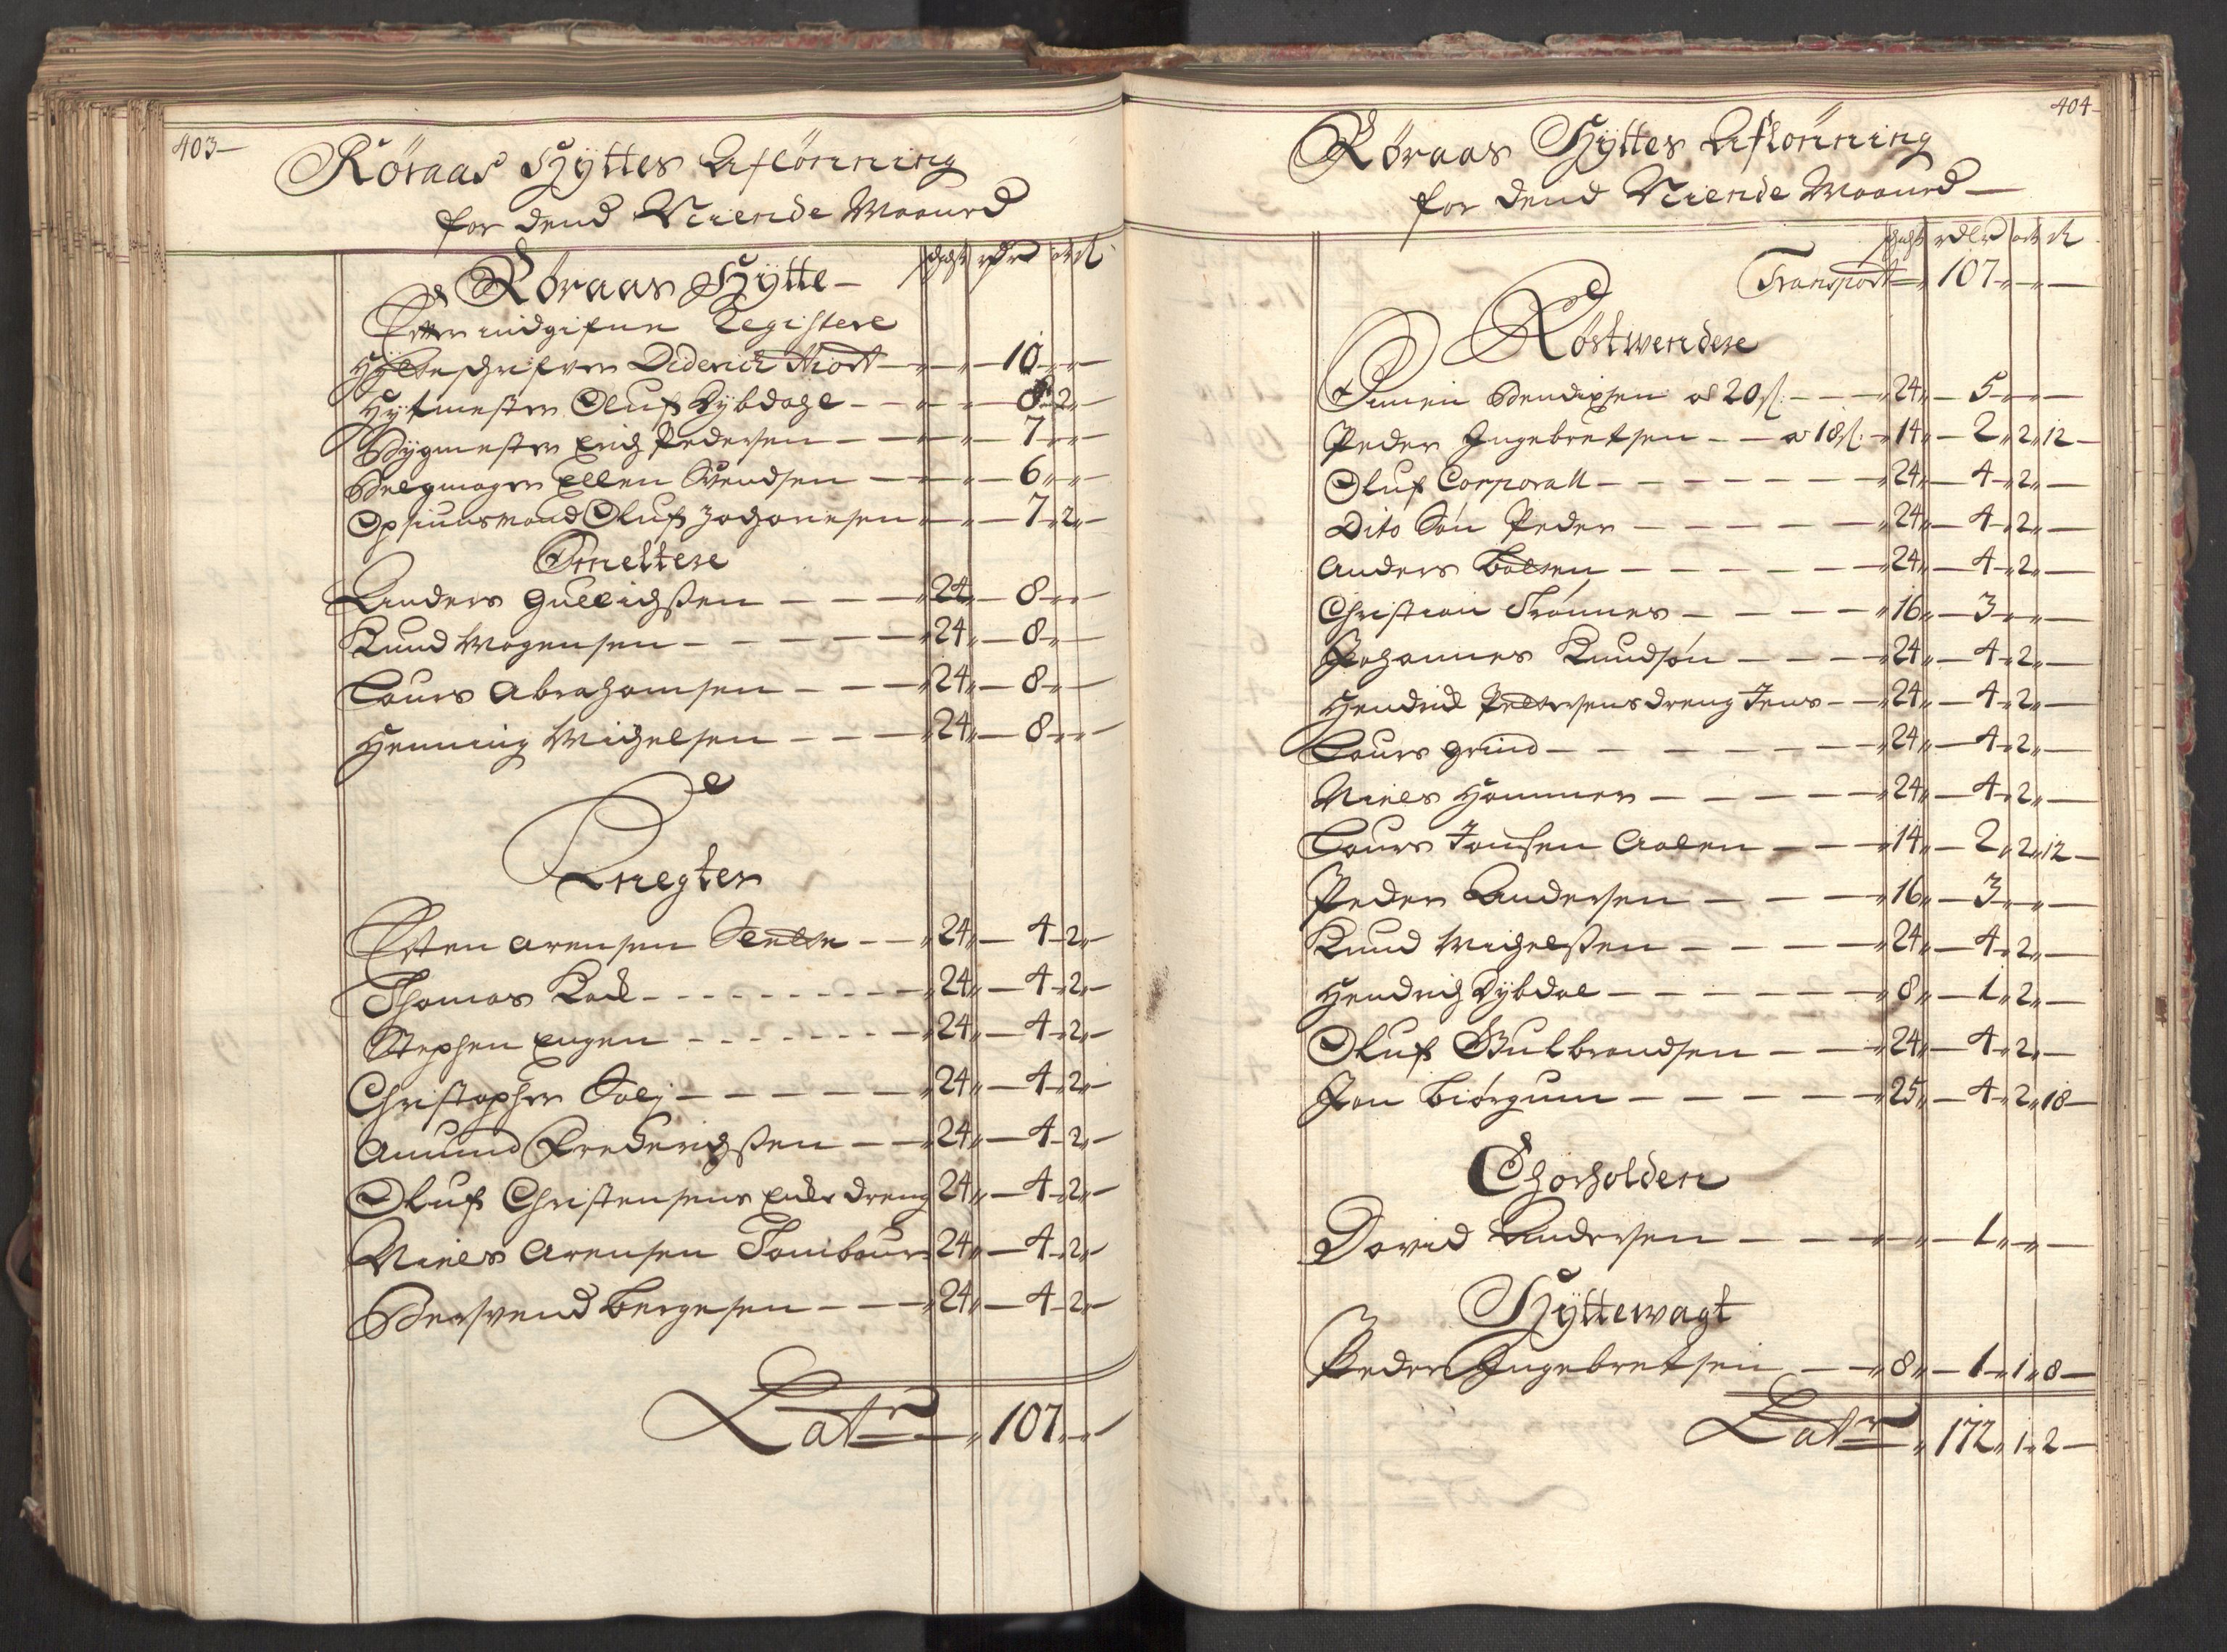 403
Röraas Hyttes Aflönning
for dend Niende Maaned
Röraas Hytte
Efter indgifne Registere
Hytteschrifver Diderich Hiort 10
Hytmester Oluf Dybdahl 8 2
Bygmester Erich Pedersen 7
Belgmager Ellen Svendsen 6
Opsiunsmand Oluf Johanesen 7 2
Smeltere
Anders Gullichssen 24 8
Knud Mogensen 24 8
Lours Abrahamsen 24 8
Henning Michelsen 24 8
Knegter
Esten Arensen Slette 24 4 2
Thomas Kock 24 4 2
Stephen Engen 24 4 2
Christopher Soly 24 4 2
Amund Frederichssen 24 4 2
Oluf Christensens dreng 24 4 2
Niels Arensen Tambour 24 4 2
Bersvend Bergesen 24 4 2
Latr 107
404
Röraas Hyttes Aflönning
for dend Niende Maaned
Transport 107
Röstwendere
Simen Bendixsen a 20 s. 24 5
Peder Ingebretsen a 18 s. 14 2 2 12
Oluf Corporall 24 4 2
Dito Sön Peder 24 4 2
Anders Bolten 24 4 2
Christian Trönnes 16 3
Johannes Knudsøn 24 4 2
Hendrick Pettersens dreng Jens 24 4 2
Lours Grind 24 4 2
Niels Hammer 24 4 2
Lours Jonsen Aalen 14 2 2 12
Peder Andersen 16 3
Knud Michelssen 24 4 2
Hendrich Dybdal 8 1 2
Oluf Gulbrandsen 24 4 2
Jon Biörgum 25 4 2 18
Chorholder
David Andersen 1
Hyttewagt
Peder Ingebretsen 8 1 1 8
Latr 172 1 2